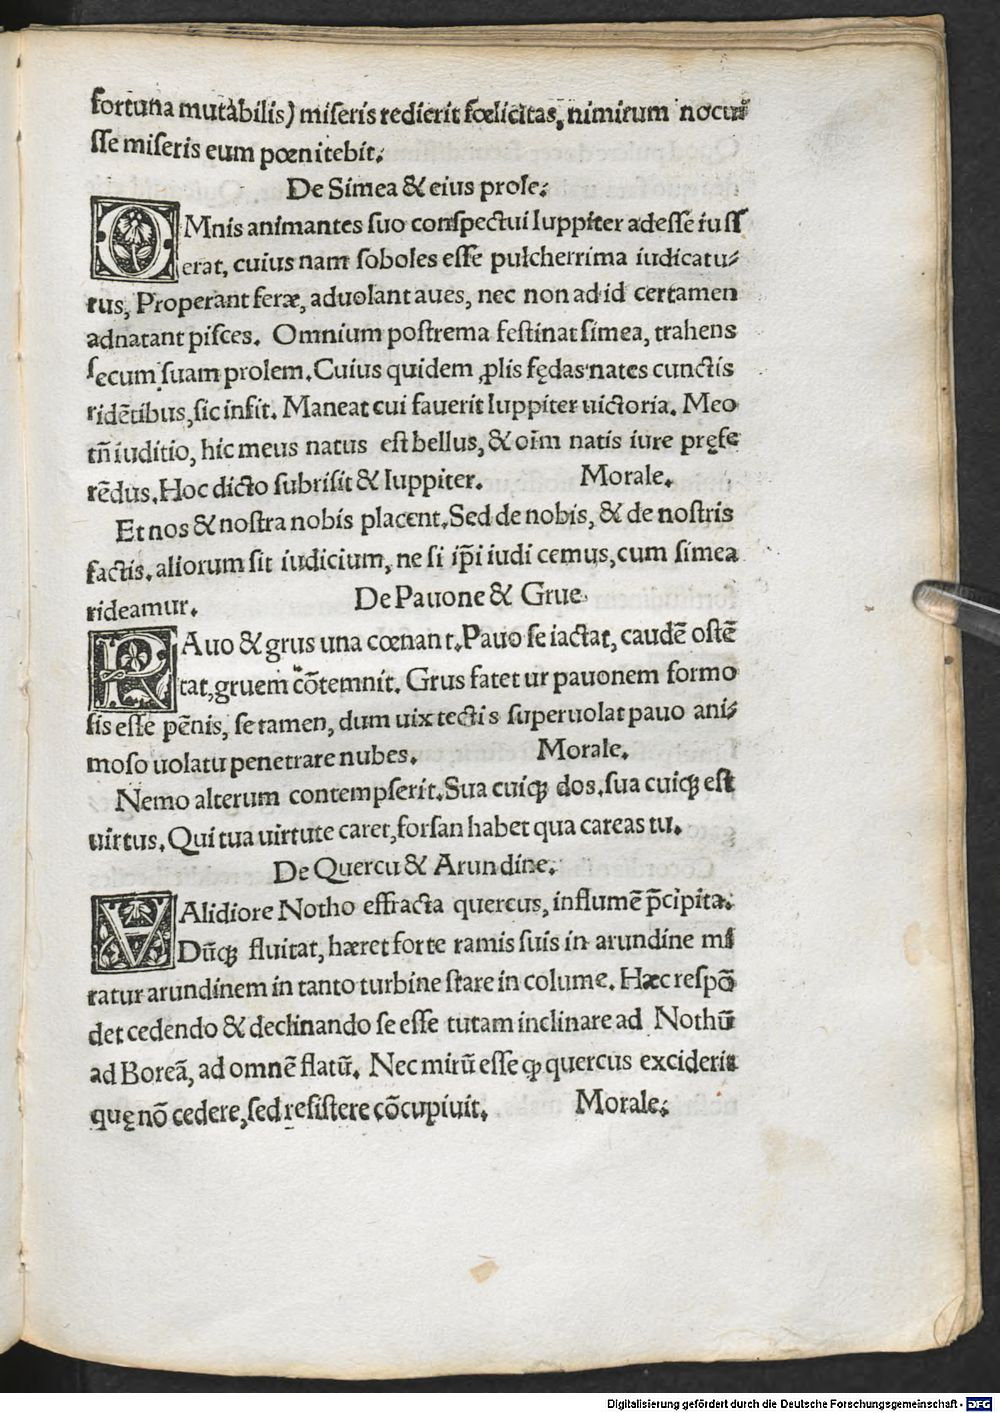 fortuna mutabilis) miseris redierit fœlicitas, nimirum nocui
sse miseris eum pœnitebit.
De Simea & eius prole.
OMnis animantes suo conspectui Iuppiter adesse iuss
erat, cuius nam soboles esse pulcherrima iudicatu-
rus, Properant feræ, aduolant aues, nec non ad id certamen
adnatant pisces. Omnium postrema festinat simea, trahens
secum suam prolem. Cuius quidem ꝓlis fędas nates cunctis
ridētibus, sic infit. Maneat cui fauerit Iuppiter uictoria. Meo
tñ iuditio, hic meus natus est bellus, & oīm natis iure pręfe
rēdus. Hoc dicto subrisit & Iuppiter. Morale.
Et nos & nostra nobis placent. Sed de nobis, & de nostris
factis. aliorum sit iudicium, ne si ip̄i iudi cemus, cum simea
rideamur. De Pauone & Grue.
RAuo & grus una cœnant. Pauo se iactat, caudē ostē
tat, gruem cōtemnit. Grus fatet ur pauonem formo
sis esse pēnis, se tamen, dum uix tectis superuolat pauo ani-
moso uolatu penetrare nubes. Morale.
Nemo alterum contempserit. Sua cuiqꝫ dos. sua cuiqꝫ est
uirtus. Qui tua uirtute caret, forsan habet qua careas tu.
De Quercu & Arundine.
VAlidiore Notho effracta quercus, in flumē p̄cipita.
Dūqꝫ fluitat, hæret forte ramis suis in arundine mi
ratur arundinem in tanto turbine stare in colume. Hæc respō
det cedendo & declinando se esse tutam inclinare ad Nothū
ad Boreā, ad omnē flatū. Nec mirū esse ꝙ quercus exciderit
quę nō cedere, sed resistere cōcupiuit. Morale.
Digitalisierung gefördert durch die Deutsche Forschungsgemeinschaft - DFG